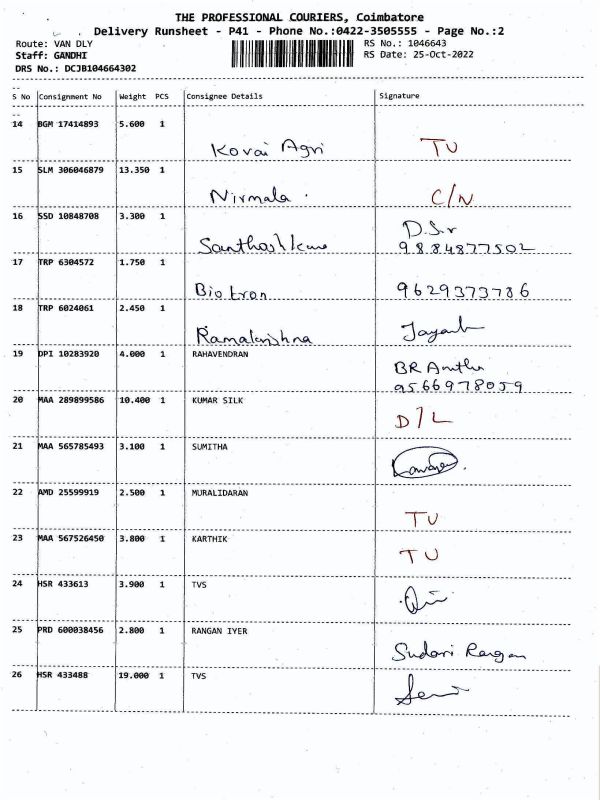 THE PROFESSIONAL COURIERS, Coimbatore
Delivery Runsheet - P41 - Phone No.:0422-3505555 - Page No.:2
Route: VAN DLY RS No.: 1046643
Staff: GANDHI RS Date: 25-Oct-2022
DRS No.: DCJB104664302
S No Consignment No Weight PCS Consignee Details Signature
14 BGM 17414893 5.600 1
Kovai Agri TU
15 SLM 306046879 13.350 1
Nirmala. C/N
16 SSD 10848708 3.300 1 D.S.r
9884877502
17 TRP 6304572 1.750 1
Biotron 9629373786
18 TRP 6024061 2.450 1
Ramakrishna
19 DPI 10283920 4.000 1 RAHAVENDRAN
BR
9566978059
20 MAA 289899586 10.400 1 KUMAR SILK
D/L
21 MAA 565785493 3.100 1 SUMITHA
22 AMD 25599919 2.500 1 MURALIDARAN
TU
23 MAA 567526450 3.800 1 KARTHIK
TU
24 HSR 433613 3.900 1 TVS
25 PRD 600038456 2.800 1 RANGAN IYER
Rangan
26 HSR 433488 19.000 1 TVS